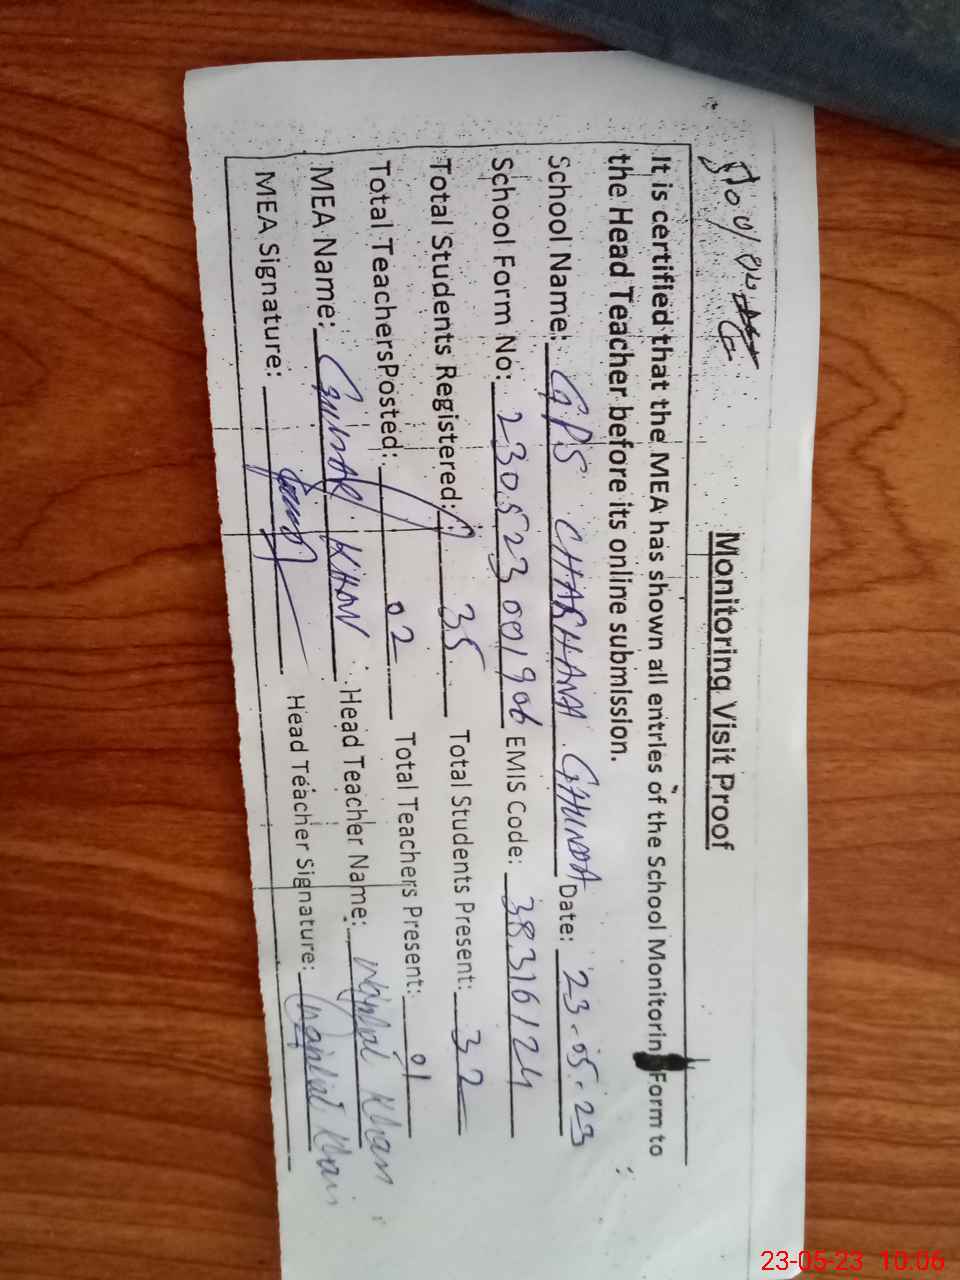 Monitoring Visit Proof
It is certified that the MEA has shown all entries of the School Monitorin Form to
the Head Teacher before its online submission.
School Name: GPS CHARHANA GHUNDA Date: 23-05-23
School Form No: 230523001906 EMIS Code: 38316124
Total Students Registered: 35 Total Students Present: 32
Total TeachersPosted: 02 Total Teachers Present: 01
MEA Name: GULZAR KHAN Head Teacher Name: Khan
MEA Signature: Head Teacher Signature: Khan
23-05-23 10:06